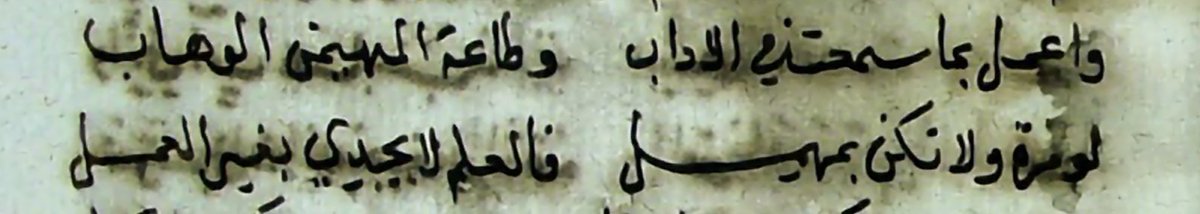 واعمل بما سمعت في الاداب وطاعة المهيمن الوهاب
لو مرة ولا تكن بمهمل فالعلم لا يجدي بغير العمل